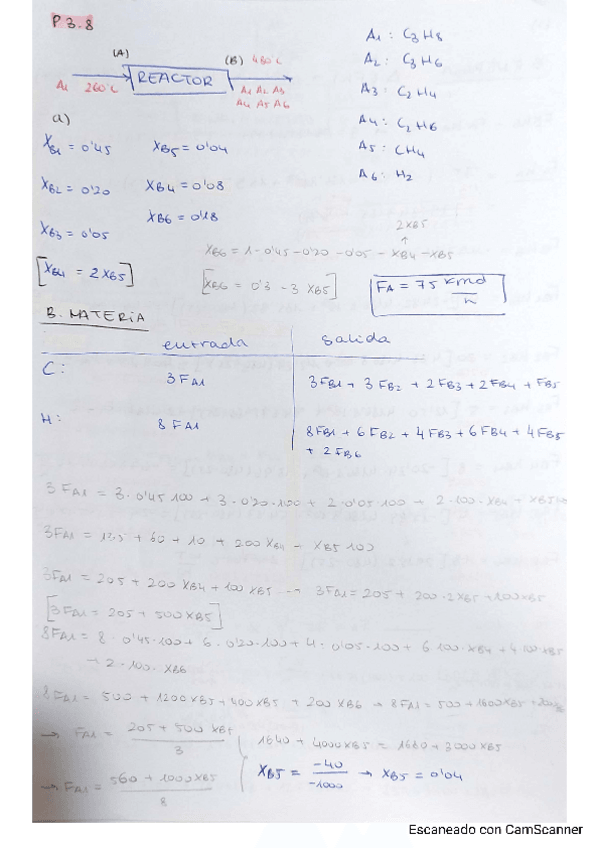 P 3.8
A1: C3H8
A2: C3H6
A3: C2H4
A4: C2H6
A5: CH4
A6: H2
(A) (B) 480°C
A1 260°C REACTOR A1 A2 A3
A4 A5 A6
a)
XB1 = 0'45 XB5 = 0'04
XB2 = 0'20 XB4 = 0'08
XB6 = 0'18
XB3 = 0'05
2XB5
↑
XB6 = 1-0'45-0'20-0'05-XB4-XB5
[XB4 = 2XB5] [XB6 = 0'3 - 3 XB5] FA = 75 kmol/h
B. MATERIA
entrada salida
C: 3FA1 3FB1 + 3FB2 + 2FB3 + 2FB4 + FB5
H: 8FA1 8FB1 + 6FB2 + 4FB3 + 6FB4 + 4FB5
+ 2FB6
3FA1 = 3·0'45·100 + 3·0'20·100 + 2·0'05·100 + 2·100·XB4 + XB5
3FA1 = 135 + 60 + 10 + 200XB4 + XB5 100
3FA1 = 205 + 200XB4 + 100XB5 → 3FA1 = 205 + 200·2XB5 + 100XB5
[3FA1 = 205 + 500XB5]
8FA1 = 8·0'45·100 + 6·0'20·100 + 4·0'05·100 + 6·100·XB4 + 4·100·XB5
+ 2·100·XB6
8FA1 = 500 + 1200XB5 + 400XB5 + 200XB6 → 8FA1 = 500 + 1600XB5 +
→ FA1 = (205 + 500XB5)/3 1640 + 4000XB5 = 1680 + 3000XB5
→ FA1 = (560 + 1000XB5)/8 XB5 = -40/-1000 → XB5 = 0'04
Escaneado con CamScanner